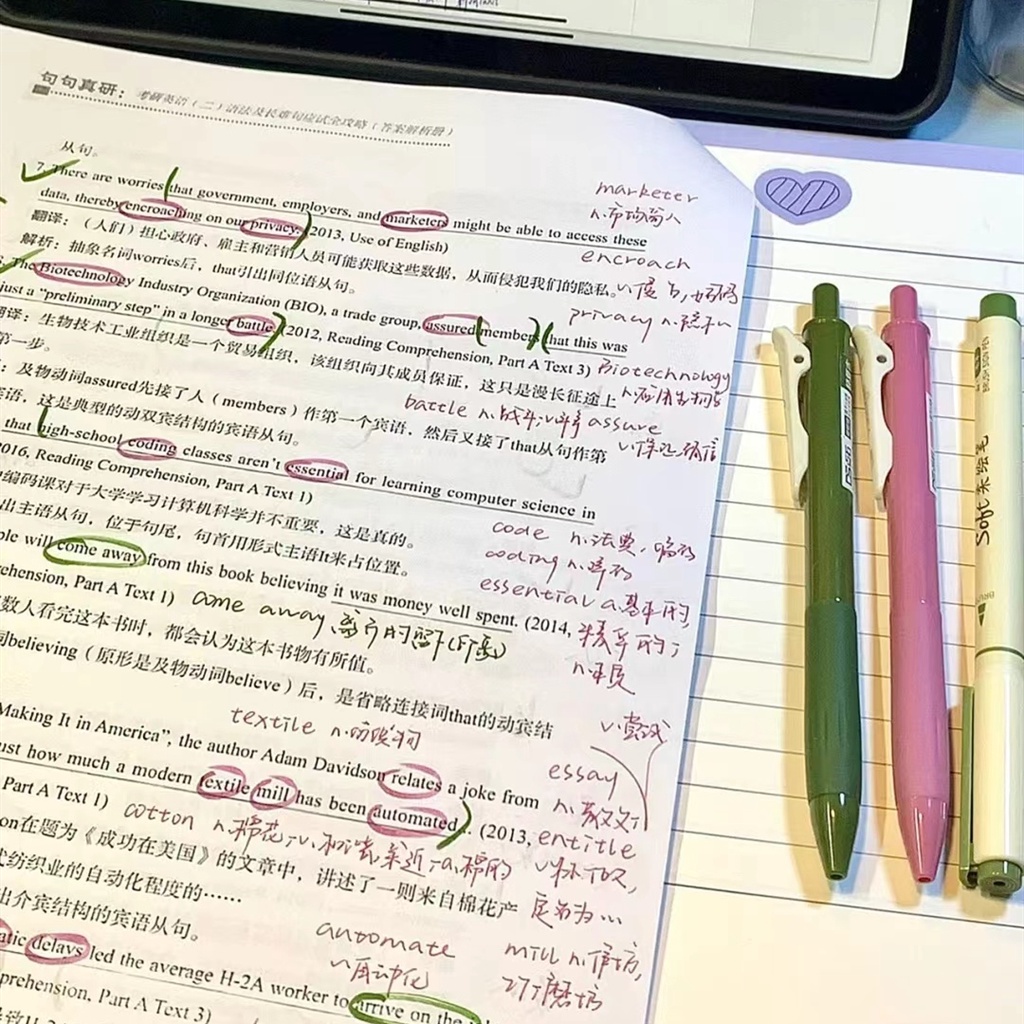 句句真研：考研英语（二）语法及长难句应试全攻略（答案解析册）
从句。
7. There are worries that government, employers, and marketers might be able to access these
data, thereby encroaching on our privacy. (2013, Use of English)
翻译：（人们）担心政府、雇主和营销人员可能获取这些数据，从而侵犯我们的隐私。
解析：抽象名词worries后，that引出同位语从句。
marketer
n.市场商人
encroach
v.侵占,
privacy n.隐私
The Biotechnology Industry Organization (BIO), a trade group, assured members that this was
just a “preliminary step” in a longer battle. (2012, Reading Comprehension, Part A Text 3)
翻译：生物技术工业组织是一个贸易组织，该组织向其成员保证，这只是漫长征途上
第一步。
Biotechnology
battle n.战斗 assure
：及物动词assured先接了人（members）作第一个宾语，然后又接了that从句作第
宾语，这是典型的动双宾结构的宾语从句。
that high-school coding classes aren’t essential for learning computer science in
2016, Reading Comprehension, Part A Text 1)
编码课对于大学学习计算机科学并不重要，这是真的。
出主语从句，位于句尾，句首用形式主语it来占位置。
code n.法典,
coding n.
essential a.基本的,
n.本质
ple will come away from this book believing it was money well spent. (2014,
ehension, Part A Text 1)
come away
数人看完这本书时，都会认为这本书物有所值。
词believing（原形是及物动词believe）后，是省略连接词that的动宾结
textile n.纺织物
Making It in America”, the author Adam Davidson relates a joke from
ust how much a modern textile mill has been automated... (2013,
Part A Text 1)
essay
n.散文
entitle
定名为…
cotton n.棉花
on在题为《成功在美国》的文章中，讲述了一则来自棉花产
代纺织业的自动化程度的……
出介宾结构的宾语从句。
automate
v.自动化
mill n.
磨坊
atic delays led the average H-2A worker to arrive on the
prehension, Part A Text 3)
DS-516
Sabyt 柔绘笔